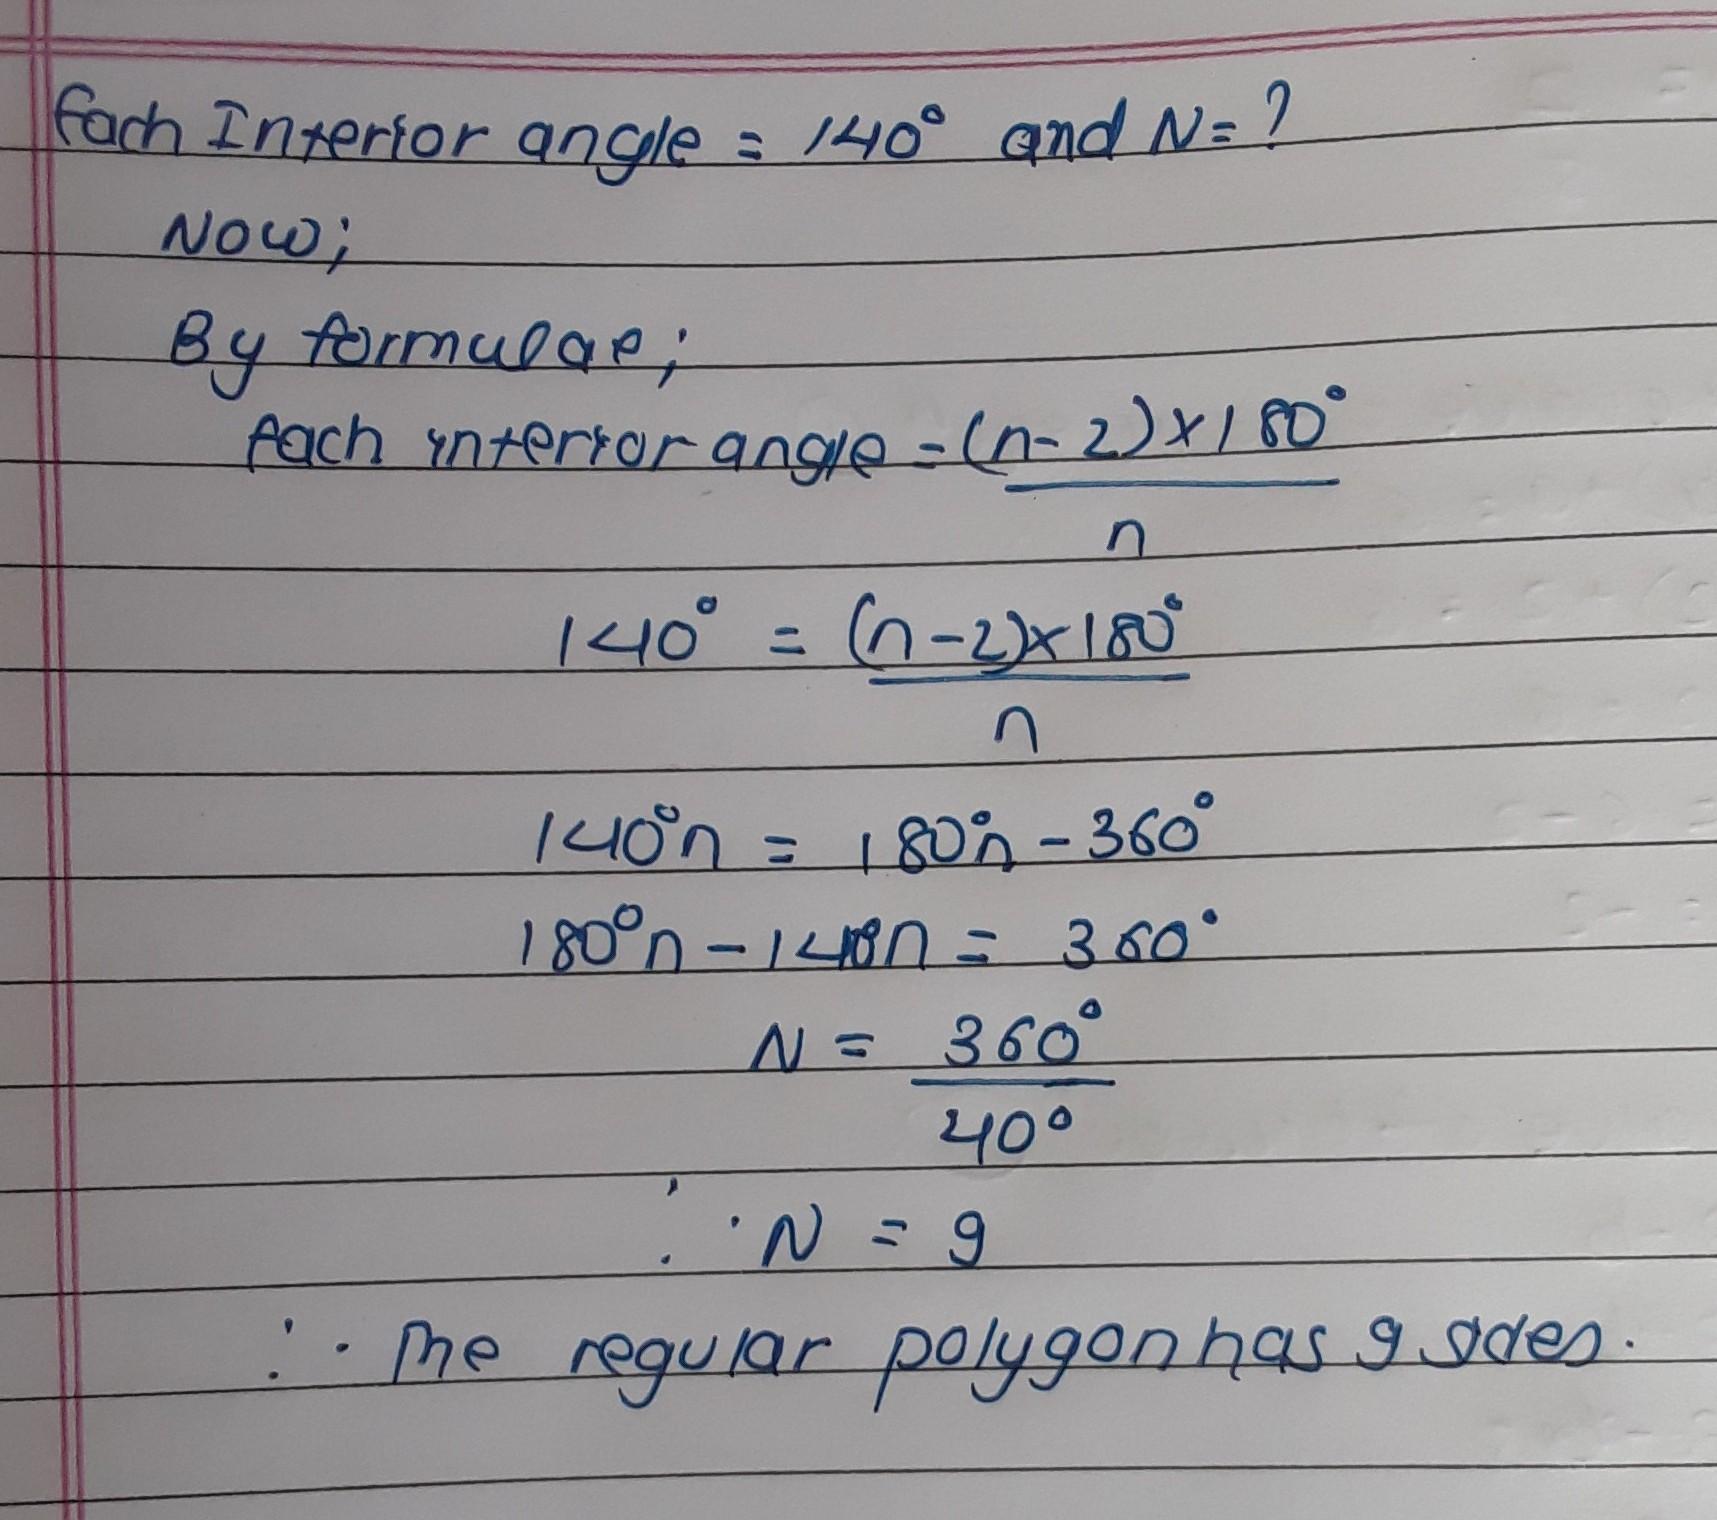 Each Interior angle = 140° and N = ?
Now;
By formulae;
Each interior angle = (n-2)×180°
n
140° = (n-2)×180°
n
140°n = 180°n - 360°
180°n - 140n = 360°
N = 360°
40°
∴ N = 9
∴ The regular polygon has 9 sides.